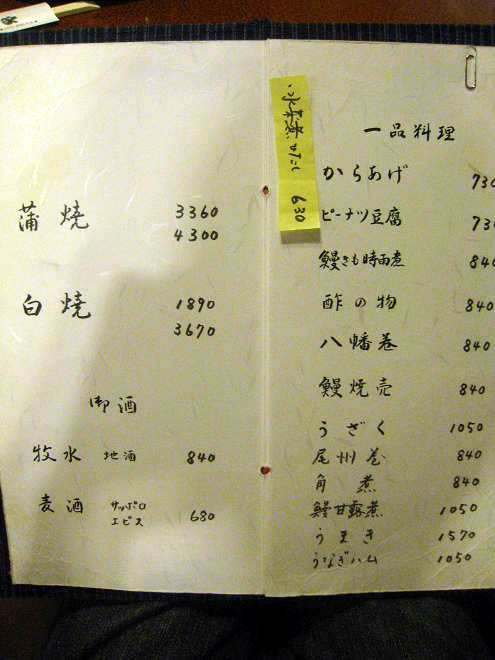 蒲焼 3360
4300
白焼 1890
3670
御酒
牧水 地酒 840
麦酒 サッポロ
エビス 680
630
一品料理
からあげ 730
ピーナツ豆腐 730
鰻きも時雨煮 840
酢の物 840
八幡巻 840
鰻焼売 840
うざく 1050
尾州巻 840
角煮 840
鰻甘露煮 1050
うまき 1570
うなぎハム 1050